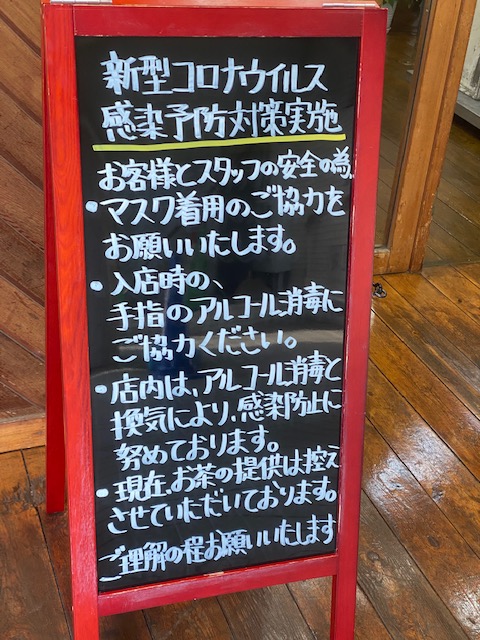 新型コロナウイルス
感染予防対策実施
お客様とスタッフの安全の為、
・マスク着用のご協力を
お願いいたします。
・入店時の、
手指のアルコール消毒に
ご協力ください。
・店内は、アルコール消毒と
換気により、感染防止に
努めております。
・現在、お茶の提供は控え
させていただいております。
ご理解の程お願いいたします